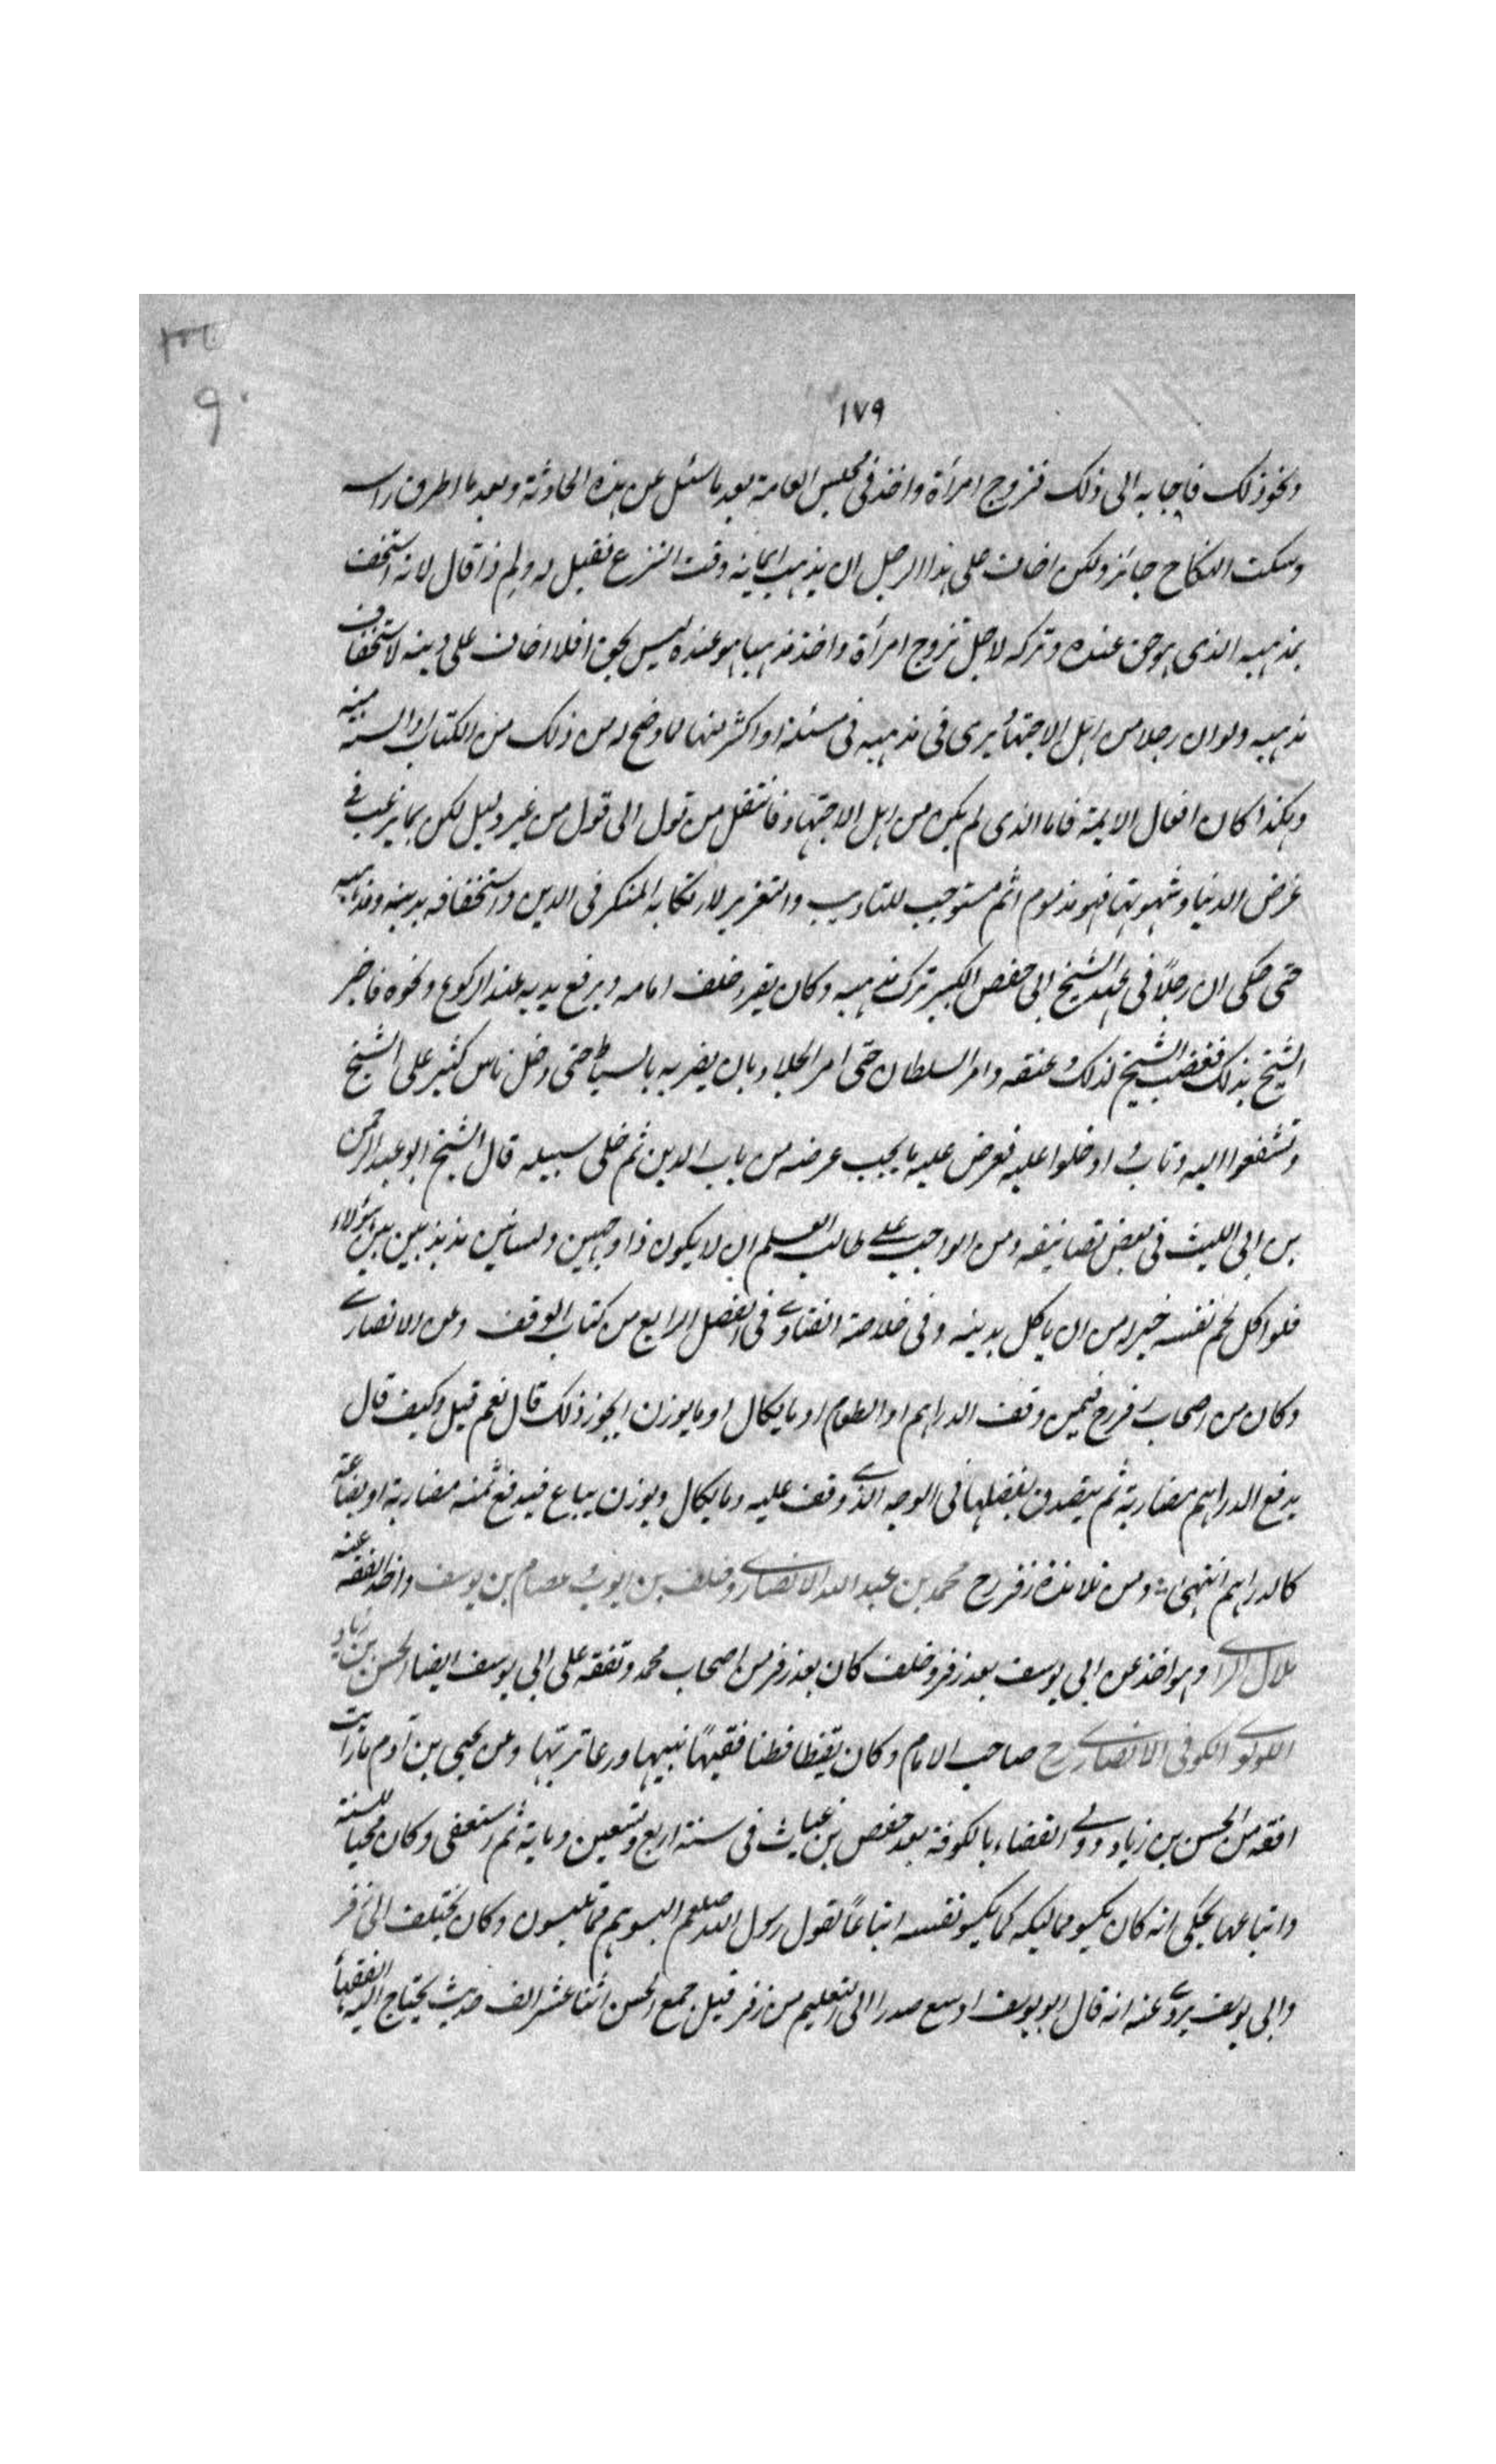 ١٧٩
ونحو ذلك فاجابه الى ذلك فتزوج امرأة واخذ فى مجلس العامة بعد ما سئل عن هذه الحادثة وبعد ما اطرق راسه
وسكت النكاح جائز ولكن اخاف على هذا الرجل ان يذهب ايمانه وقت النزع فقيل له ولم ذا قال لانه استخف
بمذهبه الذى هو حق عنده وتركه لاجل تزوج امرأة واخذ مذهبا هو عنده ليس بحق افلا اخاف على دينه لاستخفاف
مذهبه ولو ان رجلا من اهل الاجتهاد يرى فى مذهبه فى مسئلة او اكثر منها لما وضح له من ذلك من الكتاب او السنة
وهكذا كان افعال الايمة فاما الذى لم يكن من اهل الاجتهاد فانتقل من قول الى قول من غير دليل لكن بما يرغب فى
غرض الدنيا وشهوتها فهو مذموم اثم مستوجب للتاديب والتعزير لارتكابه المنكر فى الدين واستخفافه بدينه ومذهبه
حتى حكى ان رجلاً فى عهد الشيخ ابى حفص الكبير ترك مذهبه وكان يقرء خلف امامه ويرفع يديه عند الركوع ونحوه فاخبر
الشيخ بذلك فغضب الشيخ لذلك وعنفه وامر السلطان حتى امر الجلاد بان يضربه بالسياط حتى دخل ناس كثير على الشيخ
وتشفعوا اليه وتاب و ادخلوا عليه فعرض عليه ما يجب عرضه من باب الدين ثم خلى سبيله قال الشيخ ابو عبد الرحمن
بن ابى الليث فى بعض تصانيفه ومن الواجب على طالب العلم ان لا يكون ذا وجهين ولسانين مذبذبين بين هؤلاء
فلو اكل لحم نفسه خير له من ان ياكل بدينه وفى خلاصة الفتاوى فى الفصل الرابع من كتاب الوقف وعن الانصارى
وكان من اصحاب زفر رح فيمن وقف الدراهم او الطعام او ما يكال او ما يوزن ايجوز ذلك قال نعم قيل وكيف قال
يدفع الدراهم مضاربة ثم يتصدق بفضلها فى الوجه الذى وقف عليه وما يكال ويوزن يباع فيدفع ثمنه مضاربة او بضاعة
كالدراهم انتهى ومن تلامذة زفر رح محمد بن عبد الله الانصارى وخلف بن ايوب وعصام بن يوسف واخذ الفقه عنه
هلال الراى وهو اخذ عن ابى يوسف بعد زفر وخلف كان بعد زفر من اصحاب محمد وتفقه على ابى يوسف ايضا الحسن بن زياد
اللولوى الكوفى الانصارى رح صاحب الامام وكان يقظا فطنا فقيهًا نبيها ورعا وعن يحيى بن آدم ما رايت
افقه من الحسن بن زياد وولى القضاء بالكوفة بعد حفص بن غياث فى سنة اربع وتسعين وماية ثم استعفى وكان محبا للسنة
واتباعها يحكى انه كان يكسو مماليكه كما يكسو نفسه اتباعًا لقول رسول الله صلعم البسوهم مما تلبسون وكان يختلف الى زفر
وابى يوسف يروى عنه انه قال ابو يوسف اوسع صدرا الى التعليم من زفر قيل جمع الحسن اثنا عشر الف حديث يحتاج اليه الفقهاء